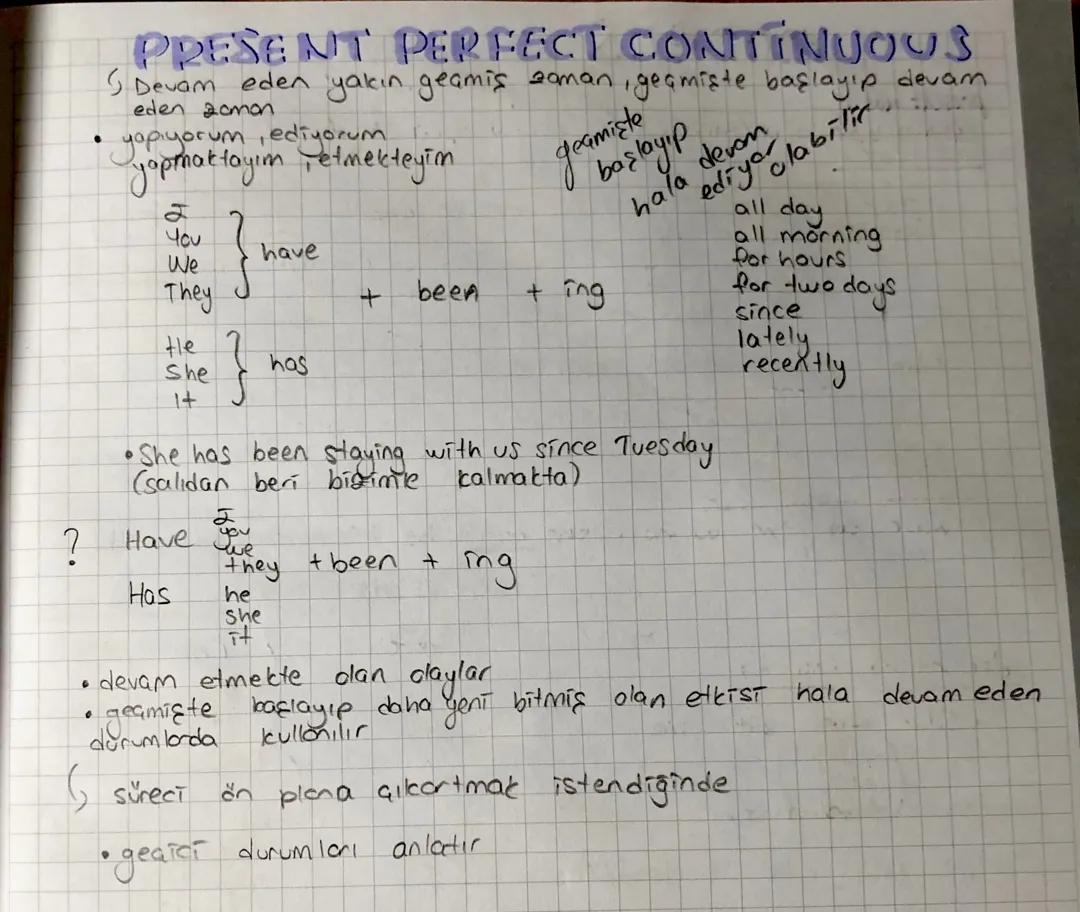 PRESENT PERFECT CONTİNUOUS
Devam eden yakın geçmiş zaman, geçmişte başlayıp devam
eden zaman
• yapıyorum, ediyorum
yapmaktayım, etmekteyim
geçmişte
başlayıp
hala devam
ediyor olabilir
I
You
We
They
have
He
She
It
has
+ been + ing
all day
all morning
for hours
for two days
since
lately
recently
• She has been staying with us since Tuesday
(salıdan beri bizimle kalmakta)
? Have I
you
we
they + been + ing
Has he
she
it
• devam etmekte olan olaylar
• geçmişte başlayıp daha yeni bitmiş olan etkisi hala devam eden
durumlarda kullanılır
süreci ön plana çıkartmak istendiğinde
• geçici durumları anlatır